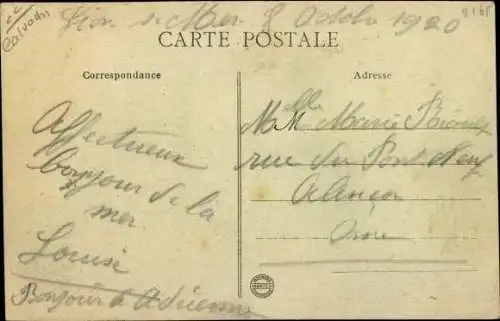 Calvados
Lion s/Mer 8 Octobre 1920
CARTE POSTALE
Correspondance
Adresse
Affectueux
bonjour de la
mer
Louise
Bonjour à Adrienne
Melle Marie
rue du Pont Neuf
Alençon
Orne